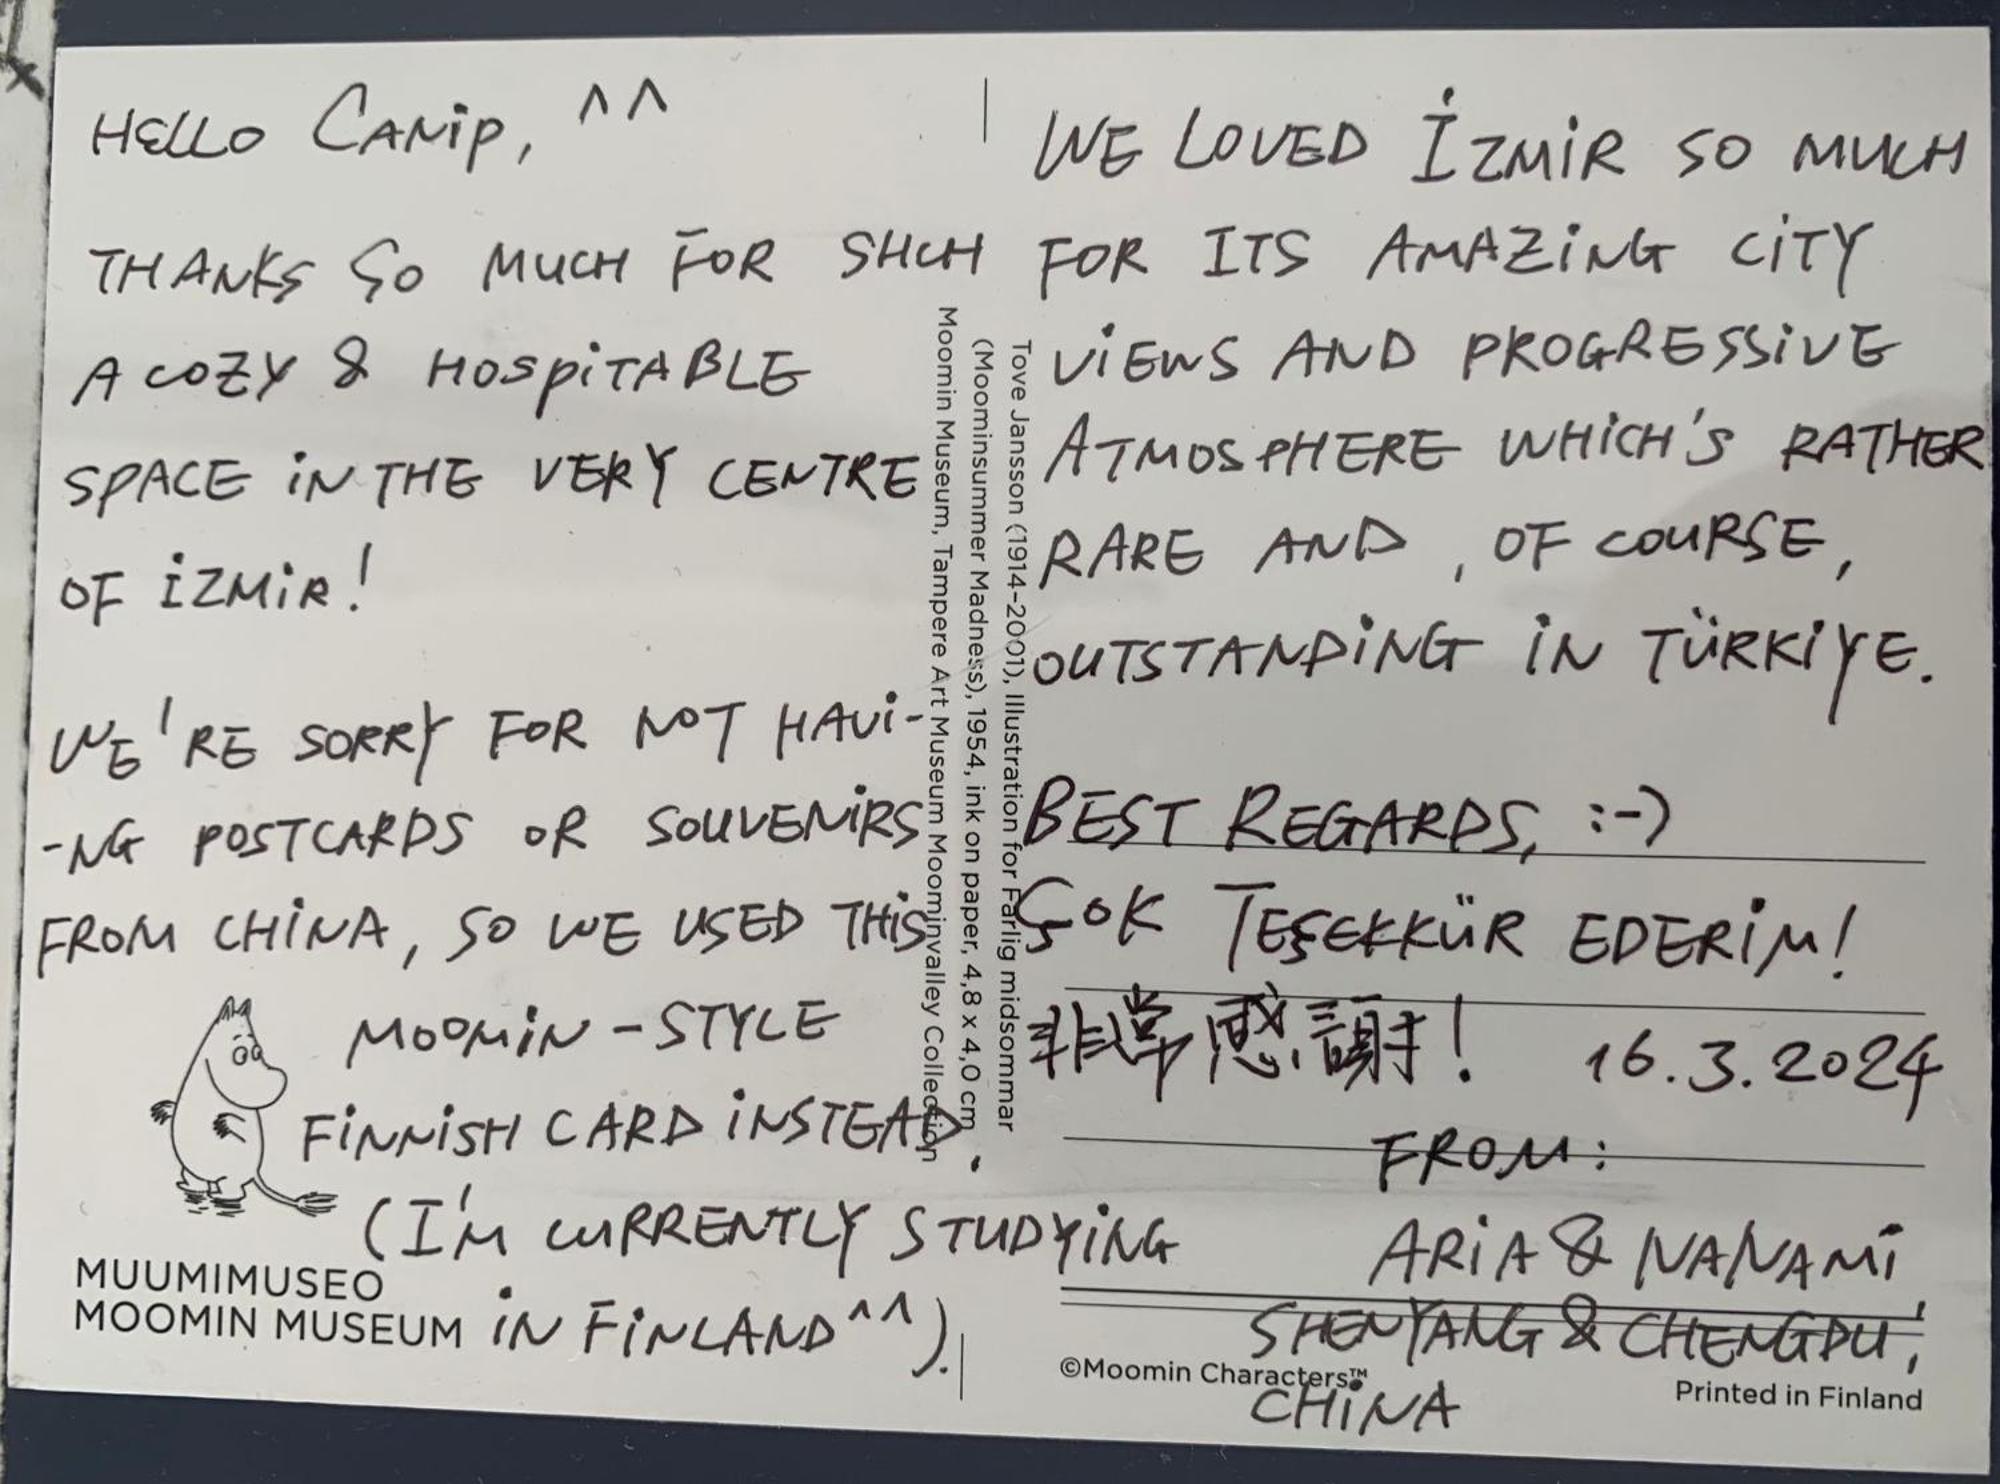 HELLO CANIP, ^^
THANKS SO MUCH FOR SUCH
A COZY & HOSPITABLE
SPACE IN THE VERY CENTRE
OF İZMİR!
WE'RE SORRY FOR NOT HAVI-
-NG POSTCARDS OR SOUVENIRS
FROM CHINA, SO WE USED THIS
MOOMIN-STYLE
FINNISH CARD INSTEAD.
(I'M CURRENTLY STUDYING
IN FINLAND^^).
MUUMIMUSEO
MOOMIN MUSEUM
Tove Jansson (1914–2001), Illustration for Farlig midsommar
(Moominsummer Madness), 1954, ink on paper, 4,8 x 4,0 cm
Moomin Museum, Tampere Art Museum Moominvalley Collection
WE LOVED İZMİR SO MUCH
FOR ITS AMAZING CITY
VIEWS AND PROGRESSIVE
ATMOSPHERE WHICH'S RATHER
RARE AND, OF COURSE,
OUTSTANDING IN TÜRKİYE.
BEST REGARDS, :-)
ÇOK TEŞEKKÜR EDERİM!
非常感謝! 16.3.2024
FROM:
ARIA & NANAMI,
SHENYANG & CHENGDU,
CHINA
©Moomin Characters™
Printed in Finland